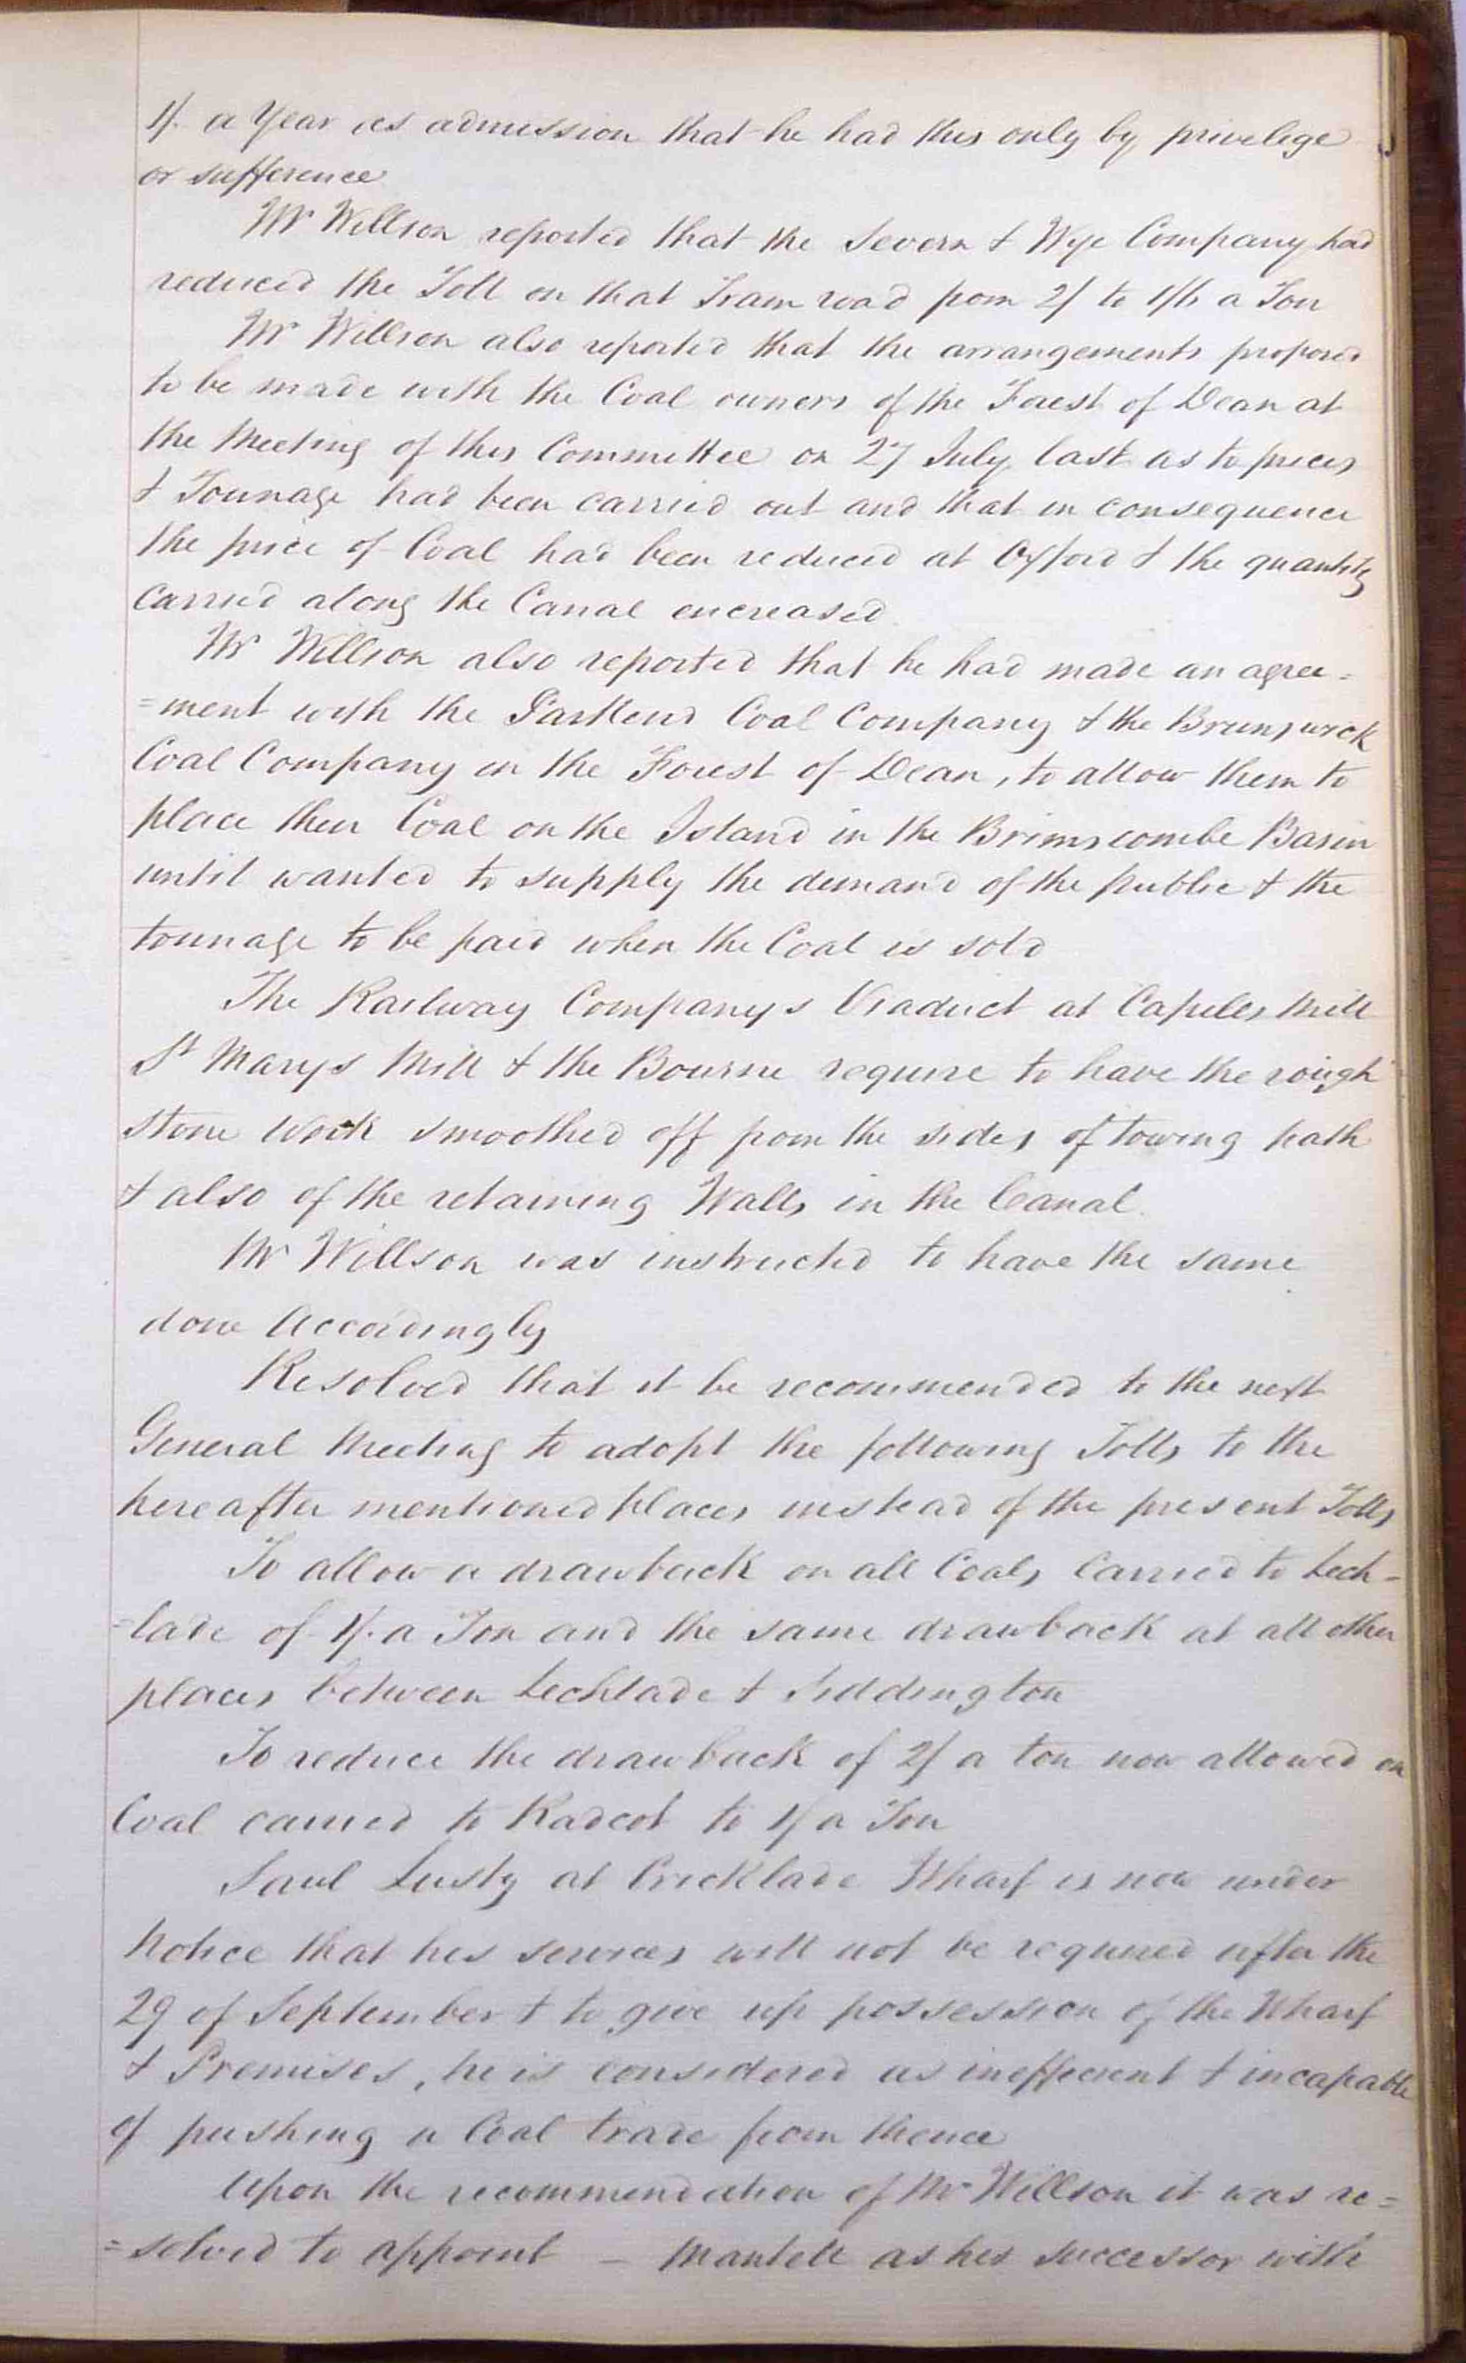 1/. a Year as admission that he had this only by privelege
or sufference
Mr Willson reported that the Severn & Wye Company had
reduced the Toll on that Tram road from 2/ to 1/6 a Ton
Mr Willson also reported that the arrangements proposed
to be made with the Coal owners of the Forest of Dean at
the Meeting of this Committee on 27 July last as to prices
& Tonnage had been carried out and that in consequence
the price of Coal had been reduced at Oxford & the quantity
carried along the Canal encreased.
Mr Willson also reported that he had made an agree=
=ment with the Parkend Coal Company & the Brunswick
Coal Company in the Forest of Dean, to allow them to
place their Coal on the Island in the Brimscombe Basin
until wanted to supply the demand of the public & the
tonnage to be paid when the Coal is sold
The Railway Companys Viaduct at Capels Mill
St Marys Mill & the Bourne require to have the rough
stone work smoothed off from the sides of towing path
& also of the retaining Walls in the Canal.
Mr Willson was instructed to have the same
done Accordingly
Resolved that it be recommended to the next
General Meeting to adopt the following Tolls to the
hereafter mentioned places instead of the present Tolls
To allow a drawback on all Coals Carried to Lech=
=lade of 1/. a Ton and the same drawback at all other
places between Lechlade & Siddington
To reduce the drawback of 2/ a ton now allowed on
Coal carried to Radcot to 1/ a Ton
Saul Lusty at Cricklade Wharf is now under
Notice that his services will not be required after the
29 of September & to give up possession of the Wharf
& Premises, he is considered as inefficient & incapable
of pushing a Coal trade from thence
Upon the recommendation of Mr Willson it was re=
=solved to appoint – Mantell as his successor with